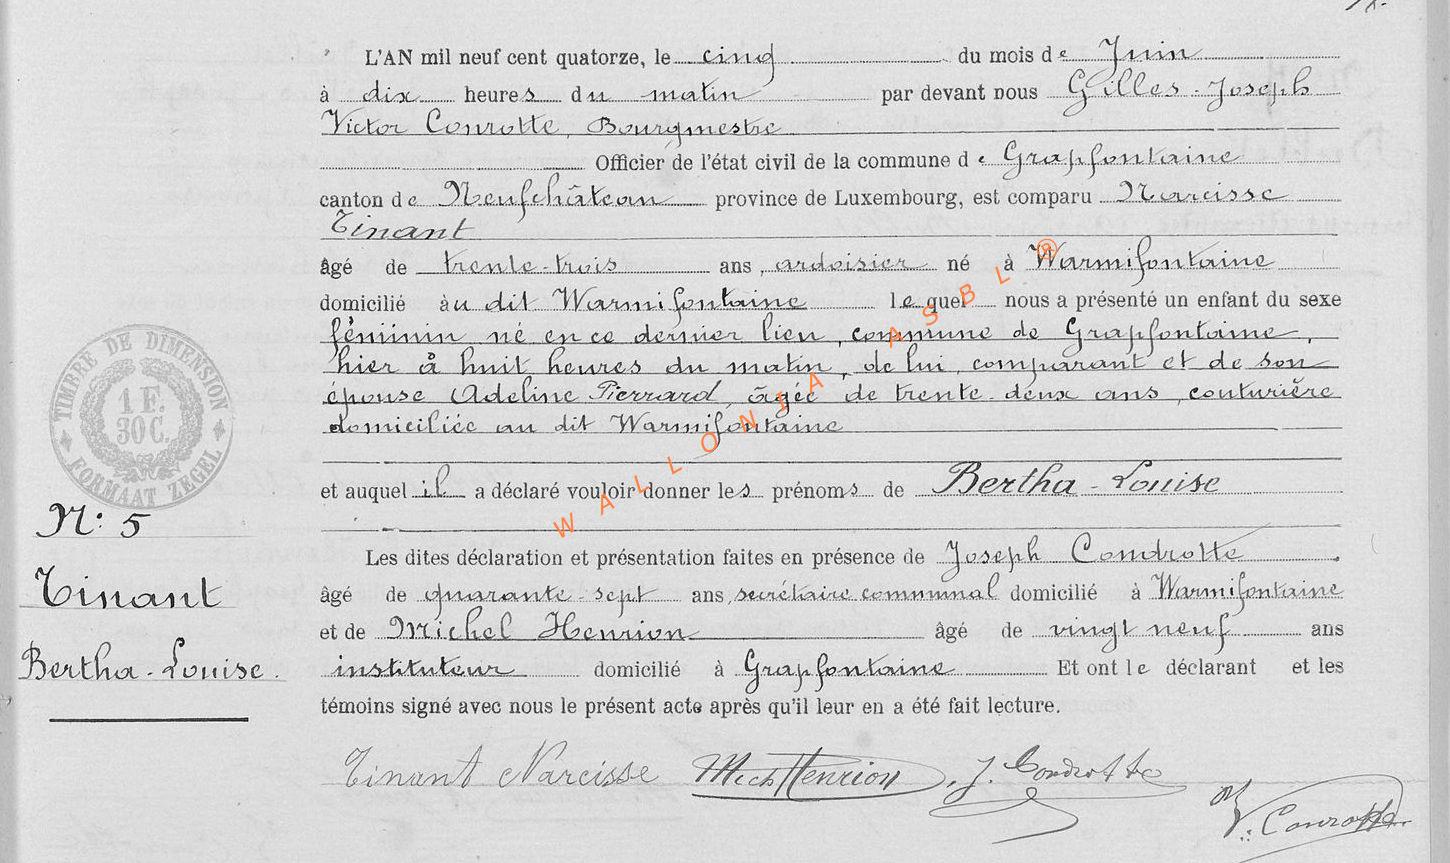 L'AN mil neuf cent quatorze, le cinq du mois de Juin
à dix heures du matin par devant nous Gilles-Joseph
Victor Conrotte, Bourgmestre
Officier de l'état civil de la commune de Grapfontaine
canton de Neufchâteau province de Luxembourg, est comparu Narcisse
Tinant
âgé de trente-trois ans, ardoisier né à Warmifontaine
domicilié àu dit Warmifontaine lequel nous a présenté un enfant du sexe
féminin né en ce dernier lieu, commune de Grapfontaine,
hier à huit heures du matin, de lui, comparant et de son
épouse Adeline Pierrard, âgée de trente-deux ans, couturière
domiciliée au dit Warmifontaine
et auquel il a déclaré vouloir donner les prénoms de Bertha-Louise
Les dites déclaration et présentation faites en présence de Joseph Condrotte
âgé de quarante-sept ans, secrétaire communal domicilié à Warmifontaine
et de Michel Henrion âgé de vingt neuf ans
instituteur domicilié à Grapfontaine Et ont le déclarant et les
témoins signé avec nous le présent acte après qu'il leur en a été fait lecture.
Tinant Narcisse Mich Henrion J. Condrotte
V. Conrotte
TIMBRE DE DIMENSION
1 F.
30 C.
FORMAAT ZEGEL
N: 5
Tinant
Bertha-Louise.
WALLONIA ASBL ®